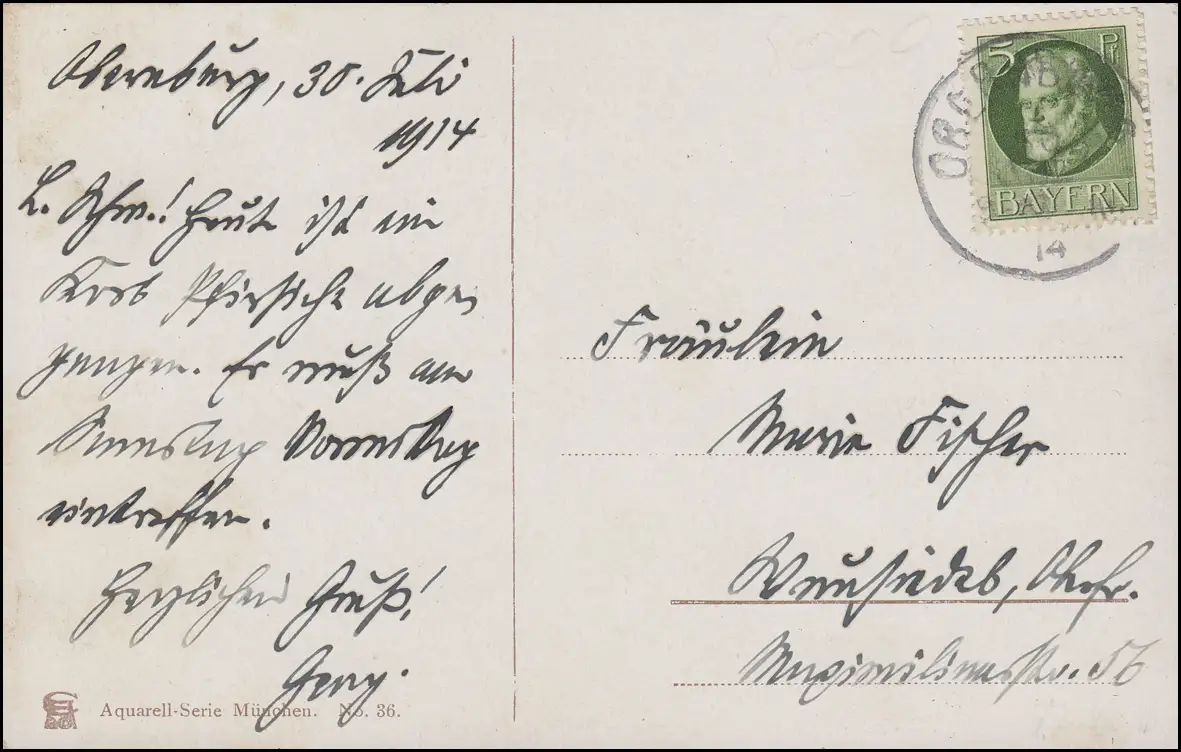 Obernburg, 30. Juli
1914
L. Schw.! Heute ist ein
Korb Pfirsiche abge-
gangen. Er muß am
Samstag Vormittag
eintreffen.
Herzlichen Gruß!
Georg.
Aquarell-Serie München. No. 36.
5 Pf
BAYERN
14
Fräulein
Marie Fischer
Wunsiedel, Oberfr.
Maximilianstr. 56